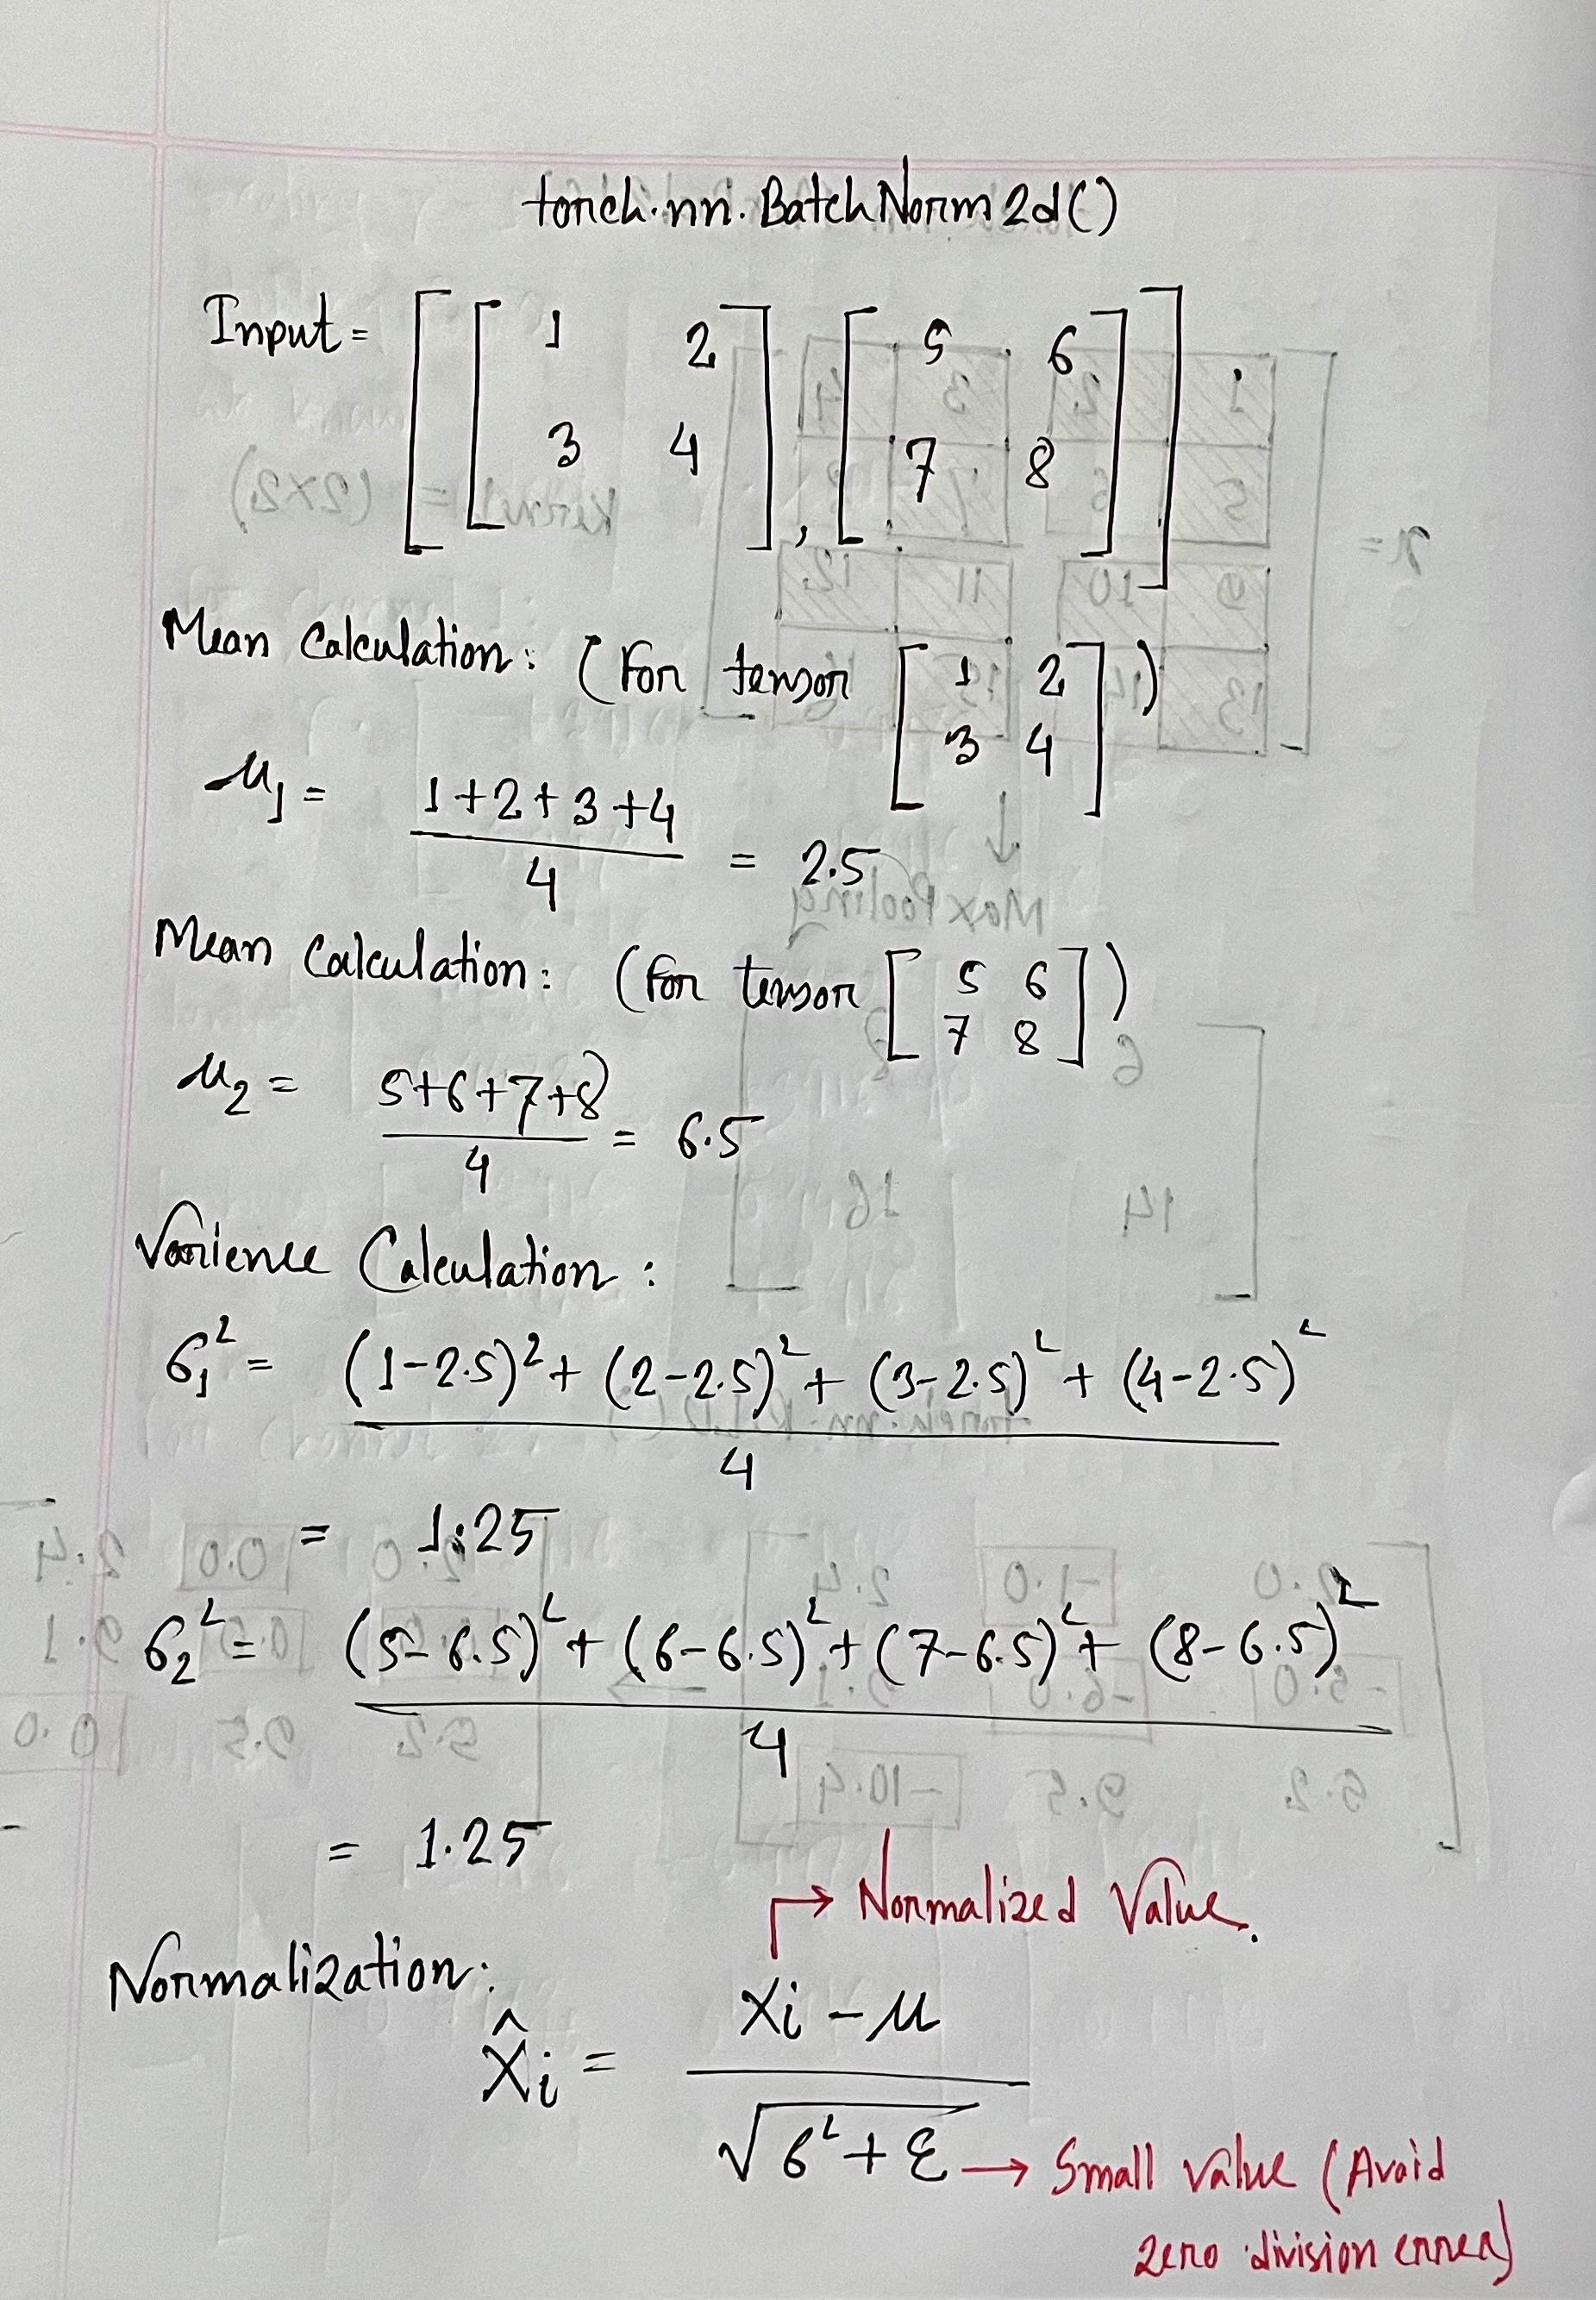 torch.nn.BatchNorm2d()
Input = [ [ 1 2
3 4 ] , [ 5 6
7 8 ] ] .
Mean Calculation : (For tensor [ 1 2
3 4 ] )
μ₁ = (1+2+3+4)/4 = 2.5
Mean Calculation : (for tensor [ 5 6
7 8 ] )
μ₂ = (5+6+7+8)/4 = 6.5
Varience Calculation :
σ₁² = ((1-2.5)² + (2-2.5)² + (3-2.5)² + (4-2.5)²)/4
= 1.25
σ₂² = ((5-6.5)² + (6-6.5)² + (7-6.5)² + (8-6.5)²)/4
= 1.25
→ Normalized Value.
Normalization:
x̂i = (xi - μ)/√(σ² + ε) → Small value (Avoid
zero division error)